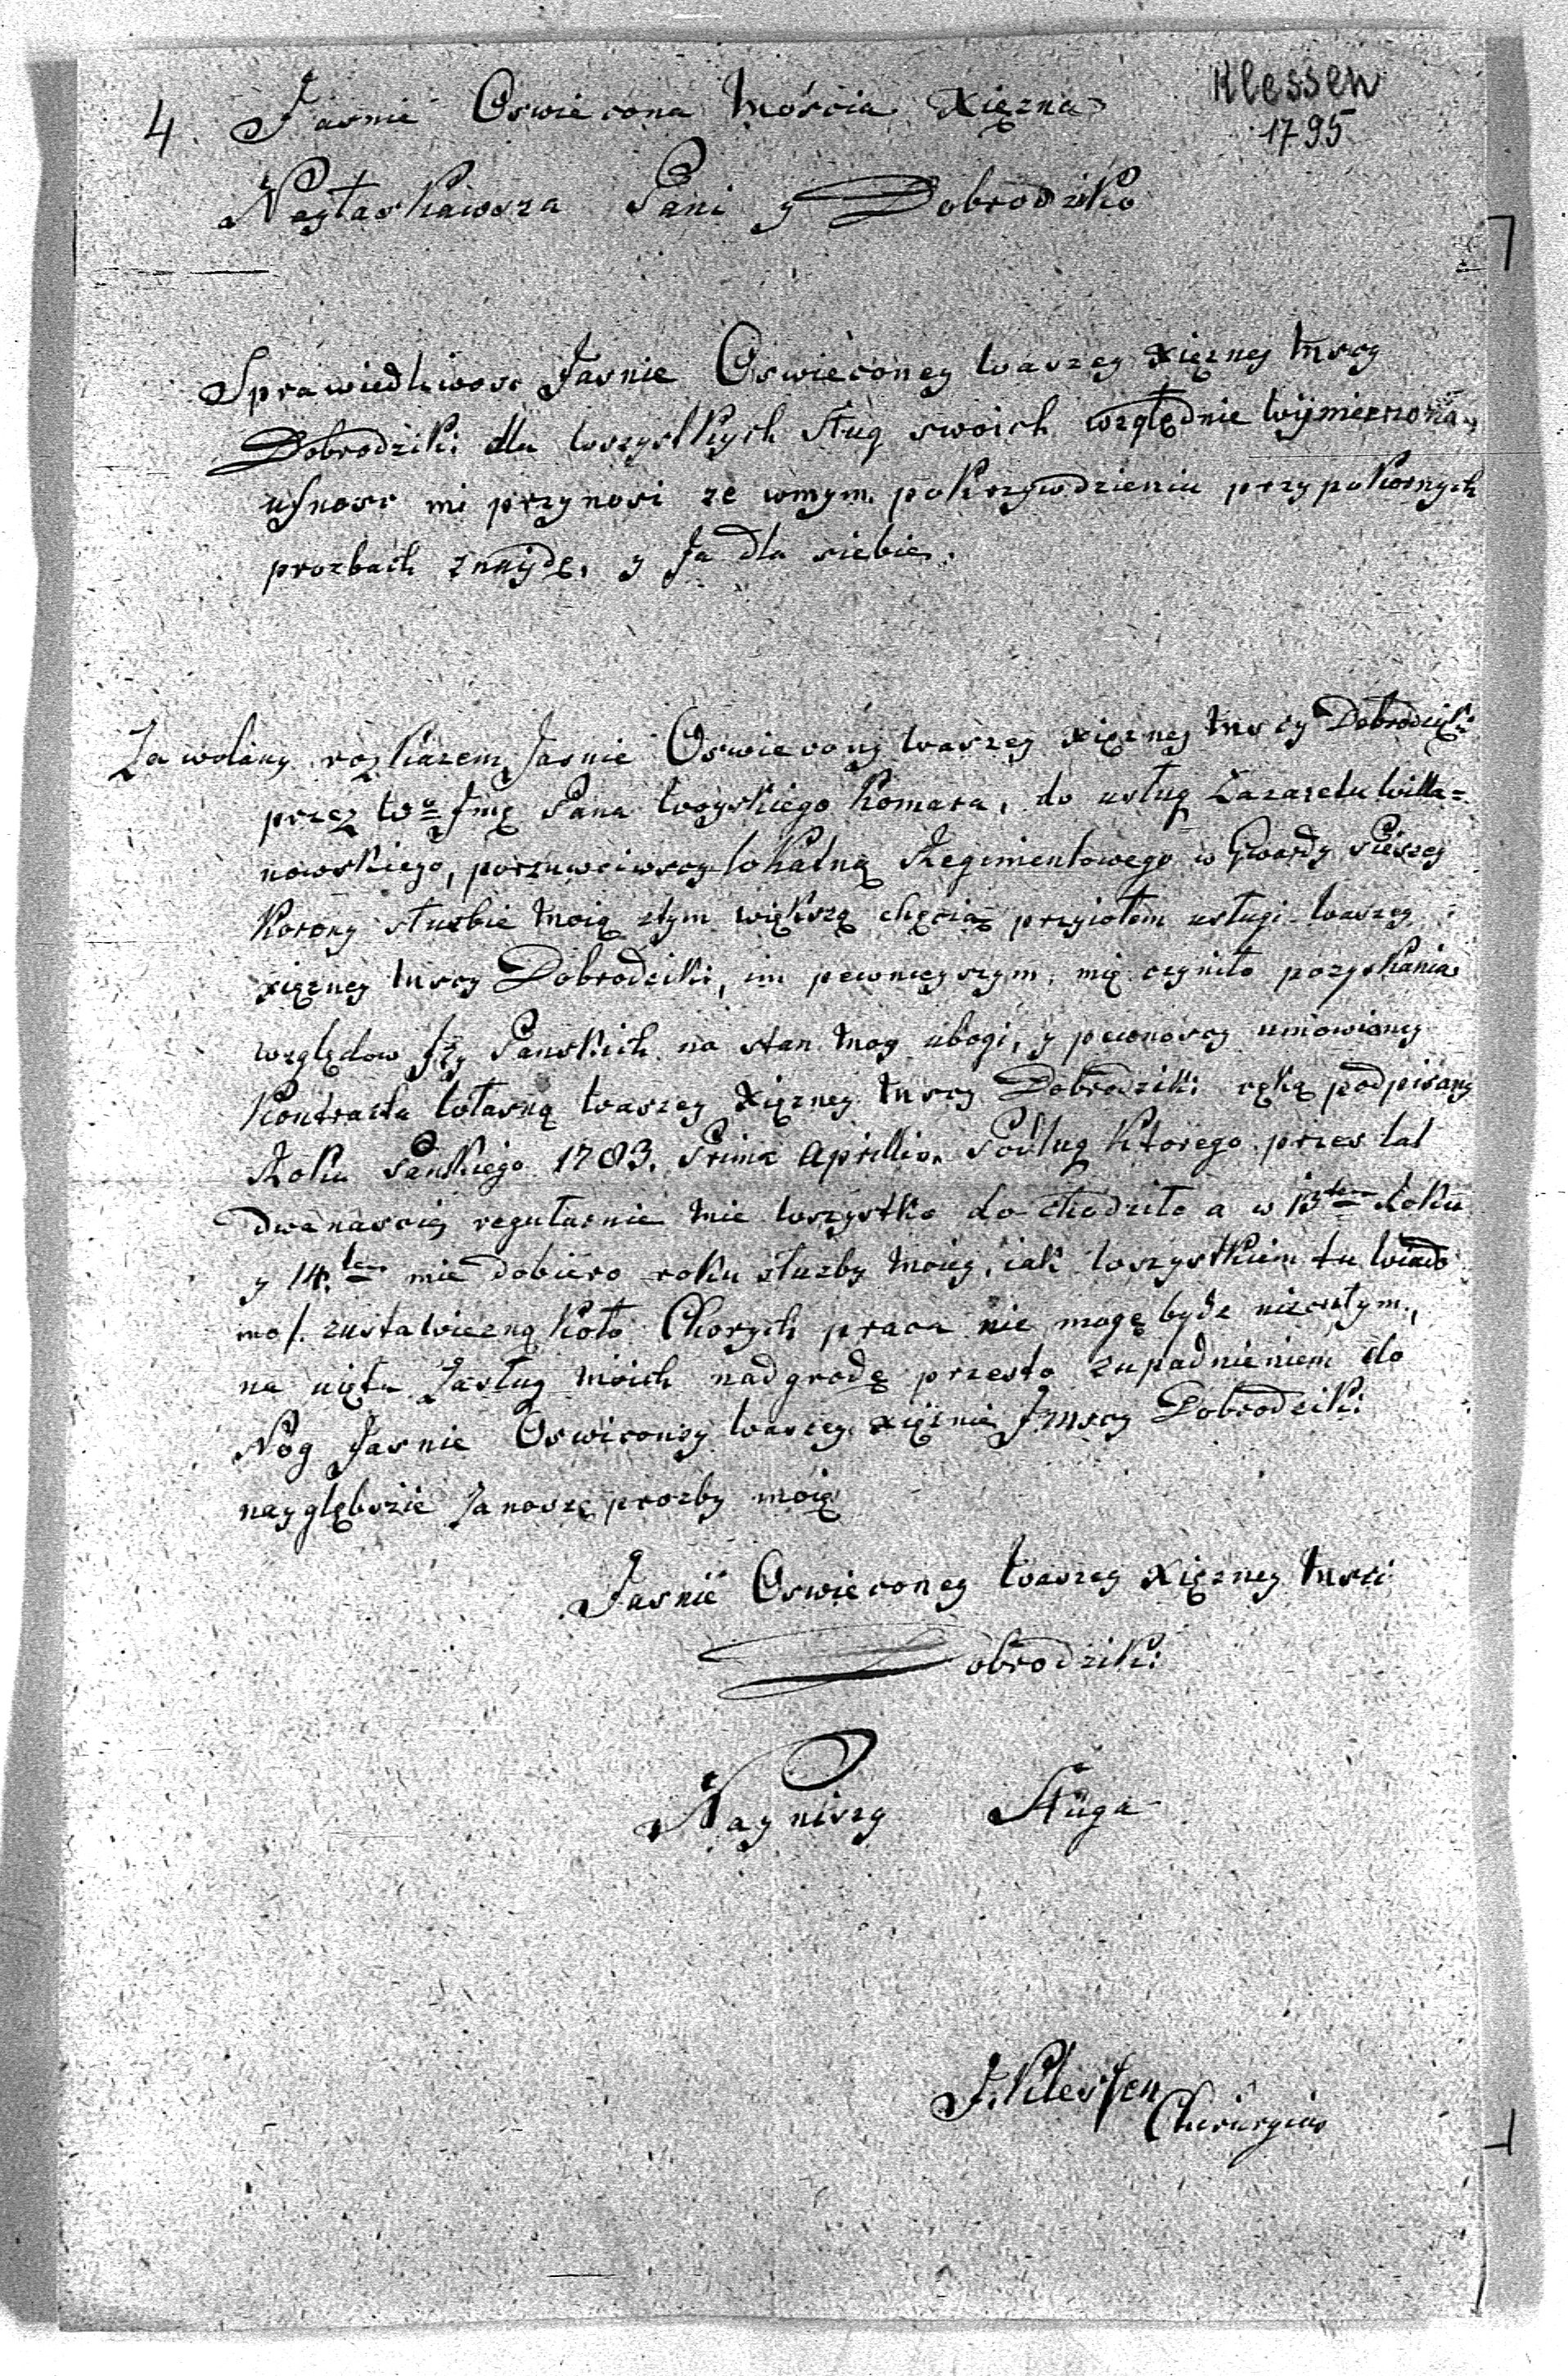 Klessen
1795
4. Jasnie Oswiecona Mościa Xięzna
Nayłaskawsza Pani y Dobrodziko
Sprawiedliwosc Jasnie Oswieconey Waszey Xięzney Mscy
Dobrodziki dla wszystkych sług swoich względnie wymierzona
ufnosc mi przynosi ze wmym pokrzywdzieniu przy pokornych
prozbach znaydę, y Ja dla siebie.
Zawolany rozkazem Jasnie Oswiecony Waszey Xięzney Mscy Dobrodziki
przez Jmę Pana Woyskiego Komara, do usług Lazaretu Willa=
nowskiego, porzuwciwszy lokalną Regimentowego w Gwardy Pieszey
Korony słuzbie moią ztym większą chęcią przyiołem usługi Waszey
Xięzney Mscy Dobrodziki, im pewnieyszym mię czyniło pozyskania
względow Jey Panskich na stan moy ubogi, y pewnoscy umowioney
Kontraktu własną Waszey Xięzney Mscy Dobrodziki ręką podpisany
Roku Panskiego 1783. Prima Aprillis. Podlug ktorego przez lat
dwanascie regularnie mie wszystko dochodziło a w 13tem Roku
y 14.tem mie dobiero roku słuzby moiey, iak wszystkiem tu wiado
mo /. zustawiczną koło Chorych praca nie mogę bydz nieczułym,
na uiętu Zasług moich nadgrodę przesto zupadnieniem do
Nog Jasnie Oswiconey Waszey Xięznie Jmscy Dobrodziki
nayglębszie Zanoszę prozby moię
Jasnie Oswieconey Waszey Xięzney Msci
Dobrodziki
Nayniszy Sługa
J. Klessen
Chirurgius